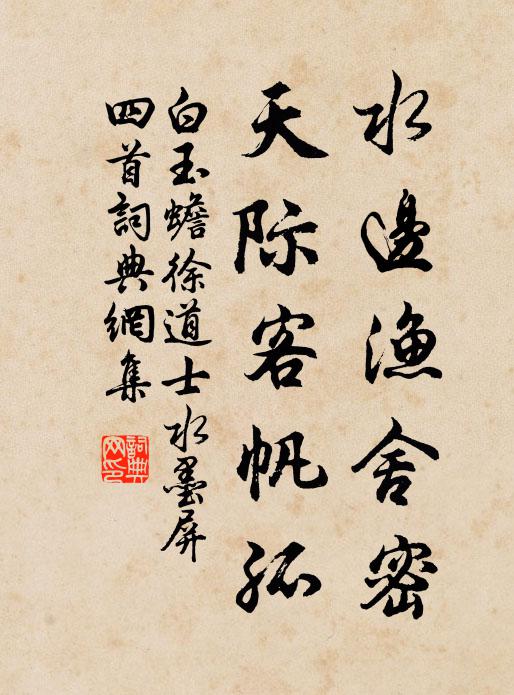 水邊渔舍密
天际客帆孤
白玉蟾徐道士水墨屏
四首詞典網集
詞典网印